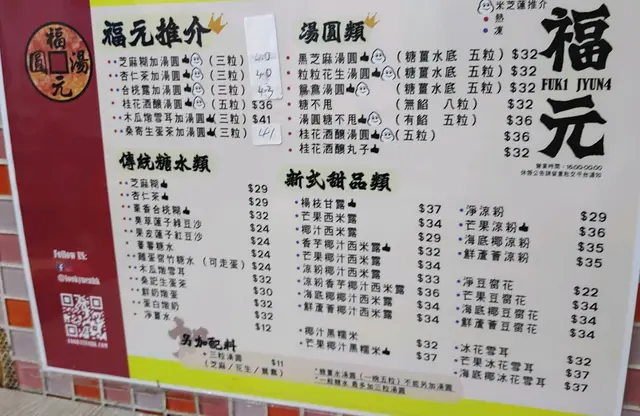 福元湯圓
福元推介
芝麻糊加湯圓（三粒） 40
杏仁茶加湯圓（三粒） 40
合桃露加湯圓（三粒） 43
桂花酒釀湯圓（五粒） $36
木瓜燉雪耳加湯圓（三粒） $41
桑寄生蛋茶加湯圓（三粒） 41
湯圓類
黑芝麻湯圓（糖薑水底 五粒） $32
粒粒花生湯圓（糖薑水底 五粒） $32
鴛鴦湯圓（糖薑水底 五粒） $32
糖不甩（無餡 八粒） $32
湯圓糖不甩（有餡 五粒） $36
桂花酒釀湯圓（五粒） $36
桂花酒釀丸子 $32
米芝蓮推介
熱
凍
福元
FUK1 JYUN4
營業時間：16:00-00:00
休假公告請留意社交平台通知
傳統糖水類
芝麻糊 $29
杏仁茶 $29
棗香合桃糊 $32
臭草蓮子綠豆沙 $24
果皮蓮子紅豆沙 $24
蕃薯糖水 $24
雞蛋腐竹糖水（可走蛋） $24
木瓜燉雪耳 $32
桑記生蛋茶 $32
鮮奶燉蛋 $30
蛋白燉奶 $32
淨薑水 $12
新式甜品類
楊枝甘露 $37
芒果西米露 $34
椰汁西米露 $29
香芋椰汁西米露 $32
芒果椰汁西米露 $34
涼粉椰汁西米露 $33
涼粉香芋椰汁西米露 $36
海底椰椰汁西米露 $34
鮮蘆薈椰汁西米露 $34
椰汁黑糯米 $32
芒果椰汁黑糯米 $37
淨涼粉 $29
芒果涼粉 $36
海底椰涼粉 $35
鮮蘆薈涼粉 $35
淨豆腐花 $22
芒果豆腐花 $34
海底椰豆腐花 $34
鮮蘆薈豆腐花 $34
冰花雪耳 $32
芒果冰花雪耳 $37
海底椰冰花雪耳 $37
另加配料
三粒湯圓 $11
（芝麻/花生/鴛鴦）
糖薑水湯圓（一碗五粒）不能另加湯圓
一碗糖水 最多加三粒湯圓
Follow US: